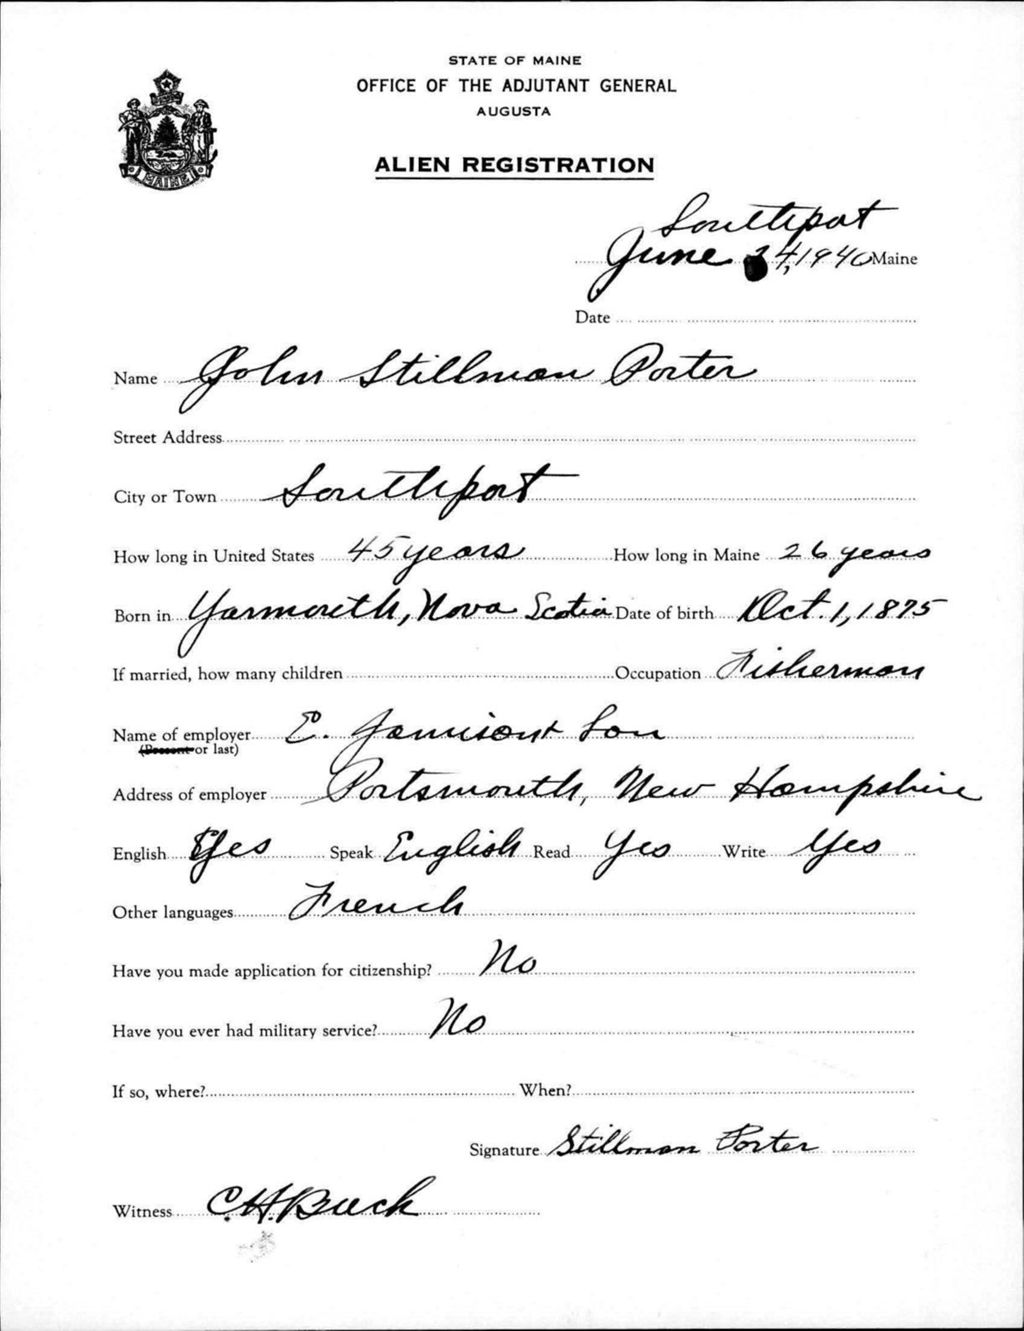 STATE OF MAINE
OFFICE OF THE ADJUTANT GENERAL
AUGUSTA
MAINE
ALIEN REGISTRATION
Southport
June 24, 1940 Maine
Date
Name John Stillman Porter
Street Address
City or Town Southport
How long in United States 45 years How long in Maine 26 years
Born in Yarmouth, Nova Scotia Date of birth Oct. 1, 1875
If married, how many children Occupation Fisherman
Name of employer E. Jamison & Son
(Present or last)
Address of employer Portsmouth, New Hampshire
English Yes Speak English Read Yes Write Yes
Other languages French
Have you made application for citizenship? No
Have you ever had military service? No
If so, where? When?
Signature Stillman Porter
Witness C.H. Buck